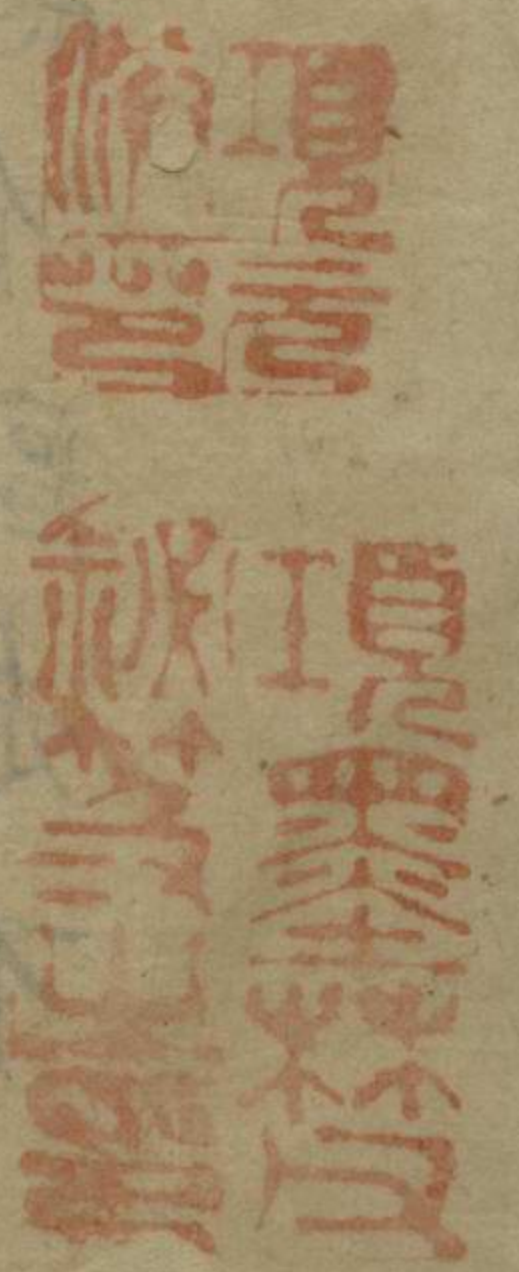 項元
汴印
項墨林父
祕笈之印